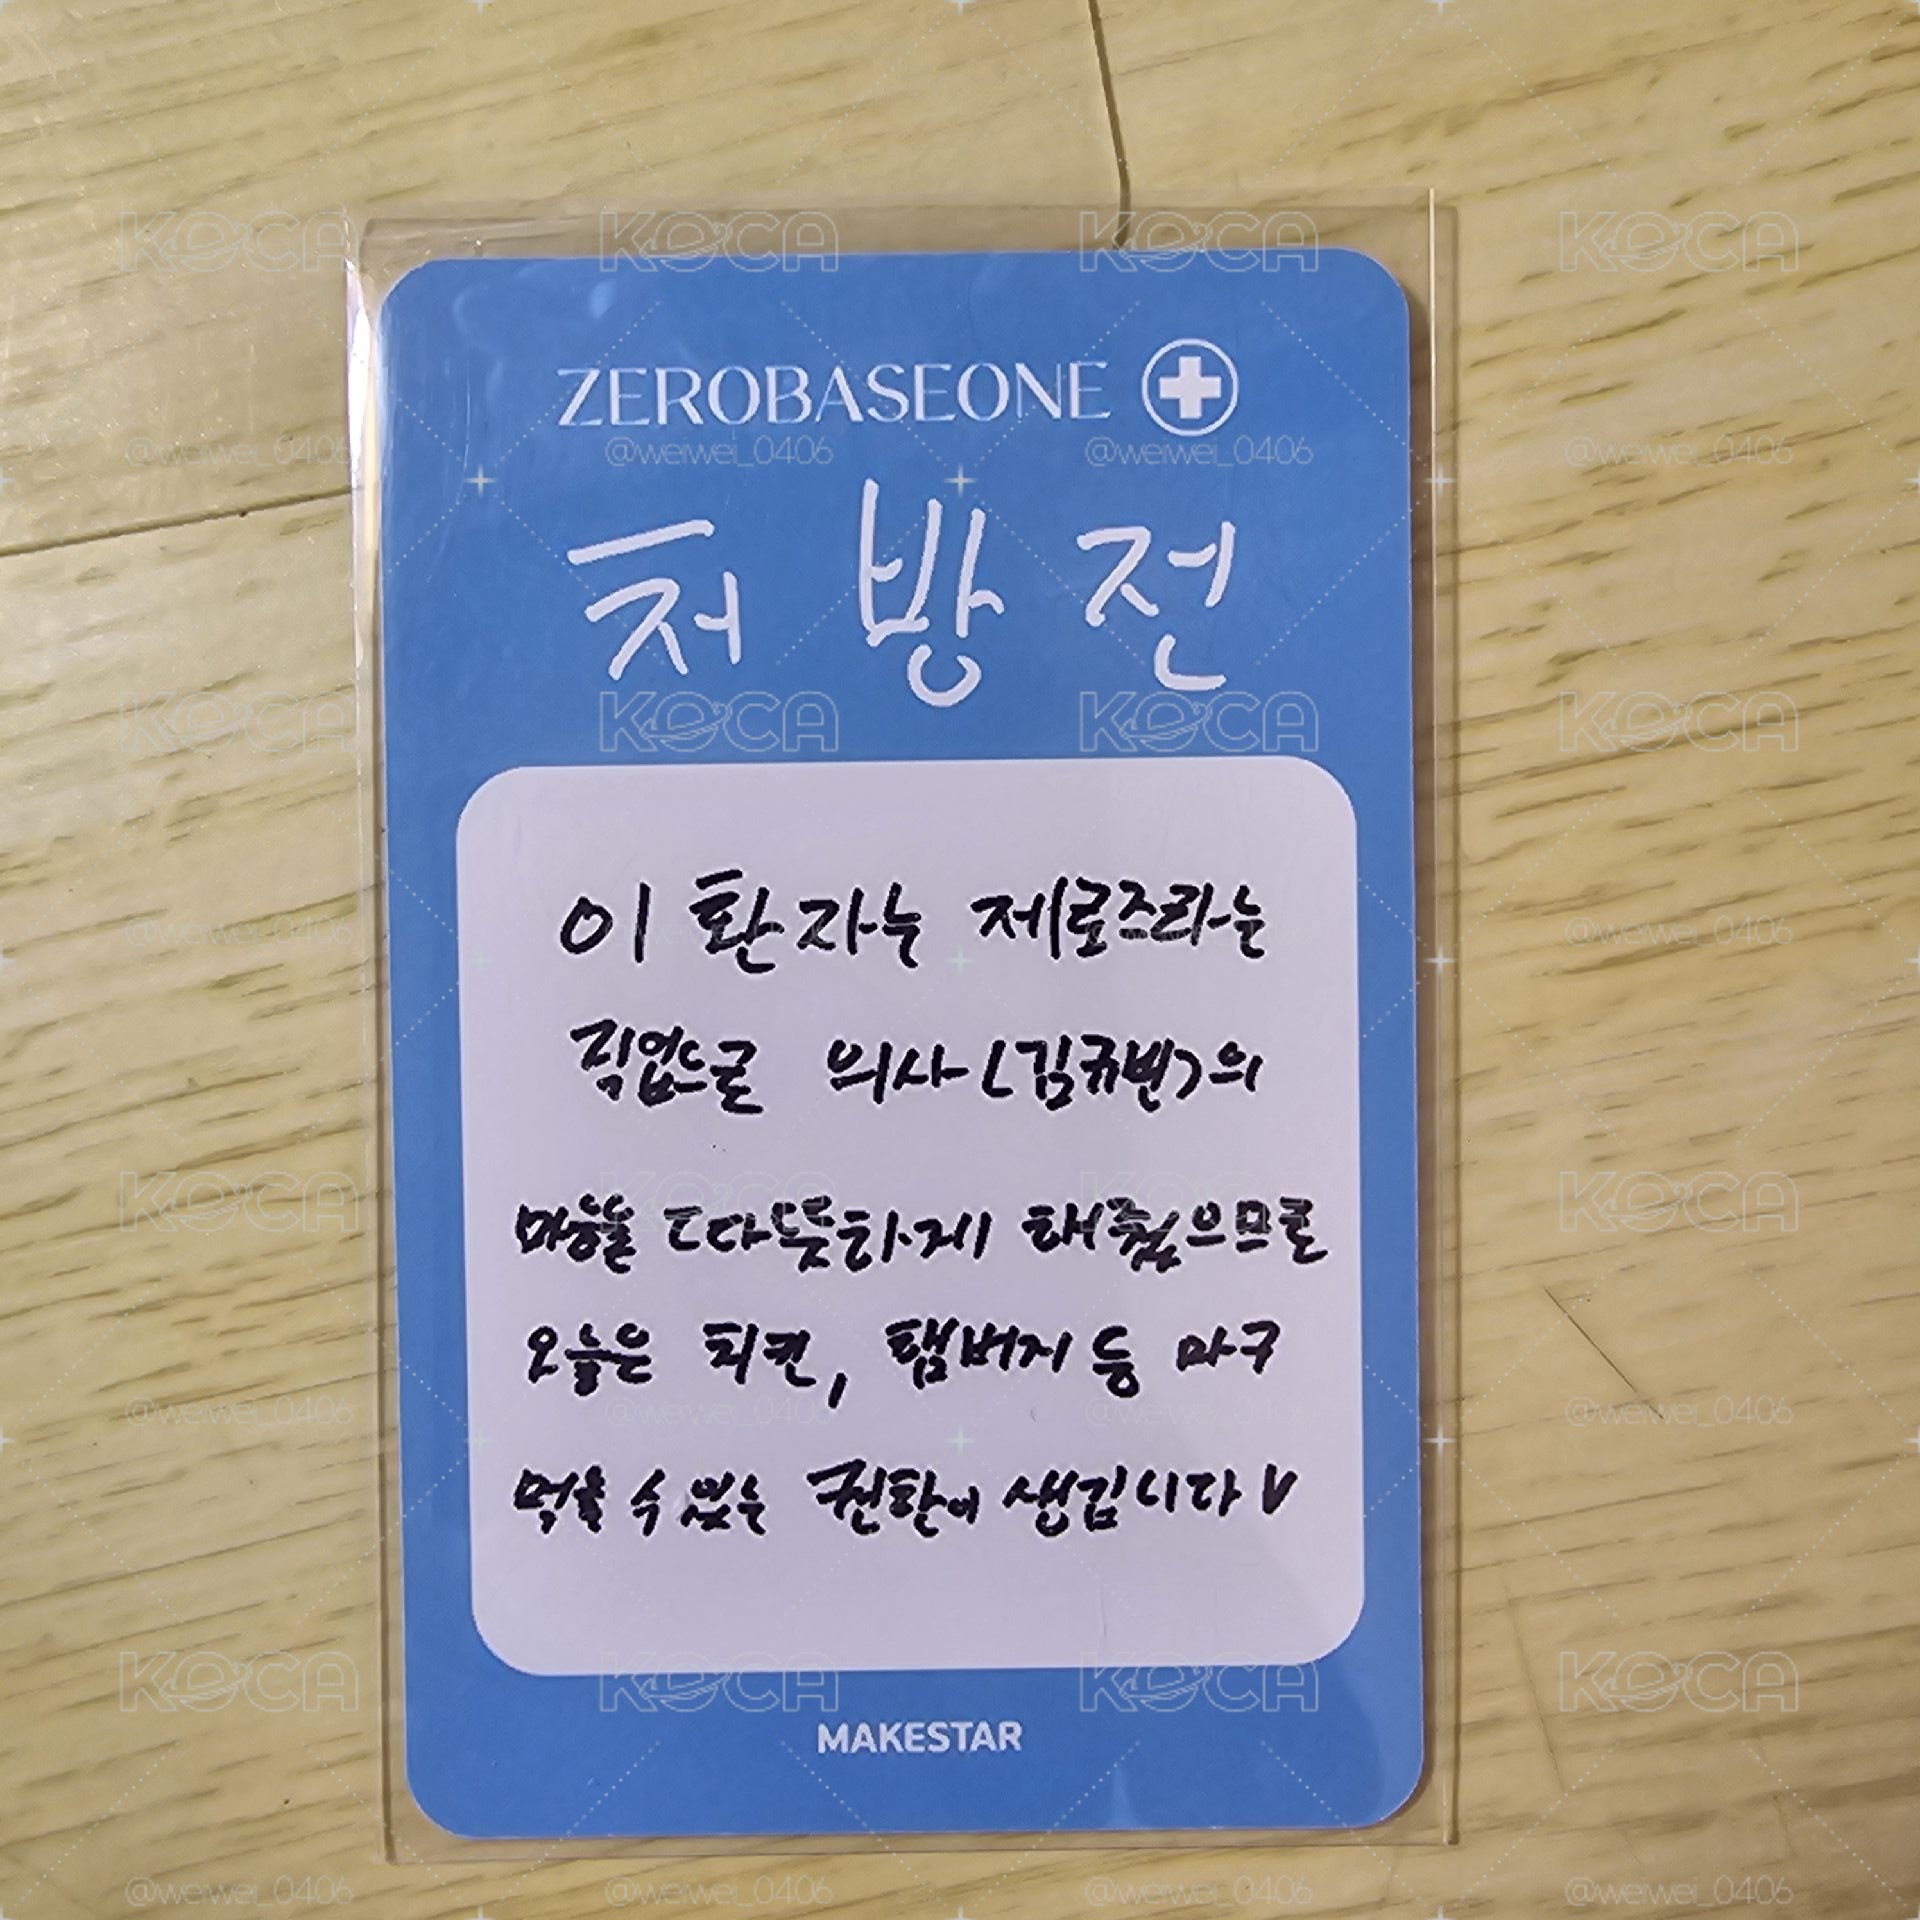 ZEROBASEONE
처방전
이 환자는 제로즈라는
직업으로 의사(김규빈)의
마음을 따뜻하게 해줬으므로
오늘은 치킨, 햄버거 등 마구
먹을 수 있는 권한이 생깁니다 V
MAKESTAR
KOCA
@weiwei_0406